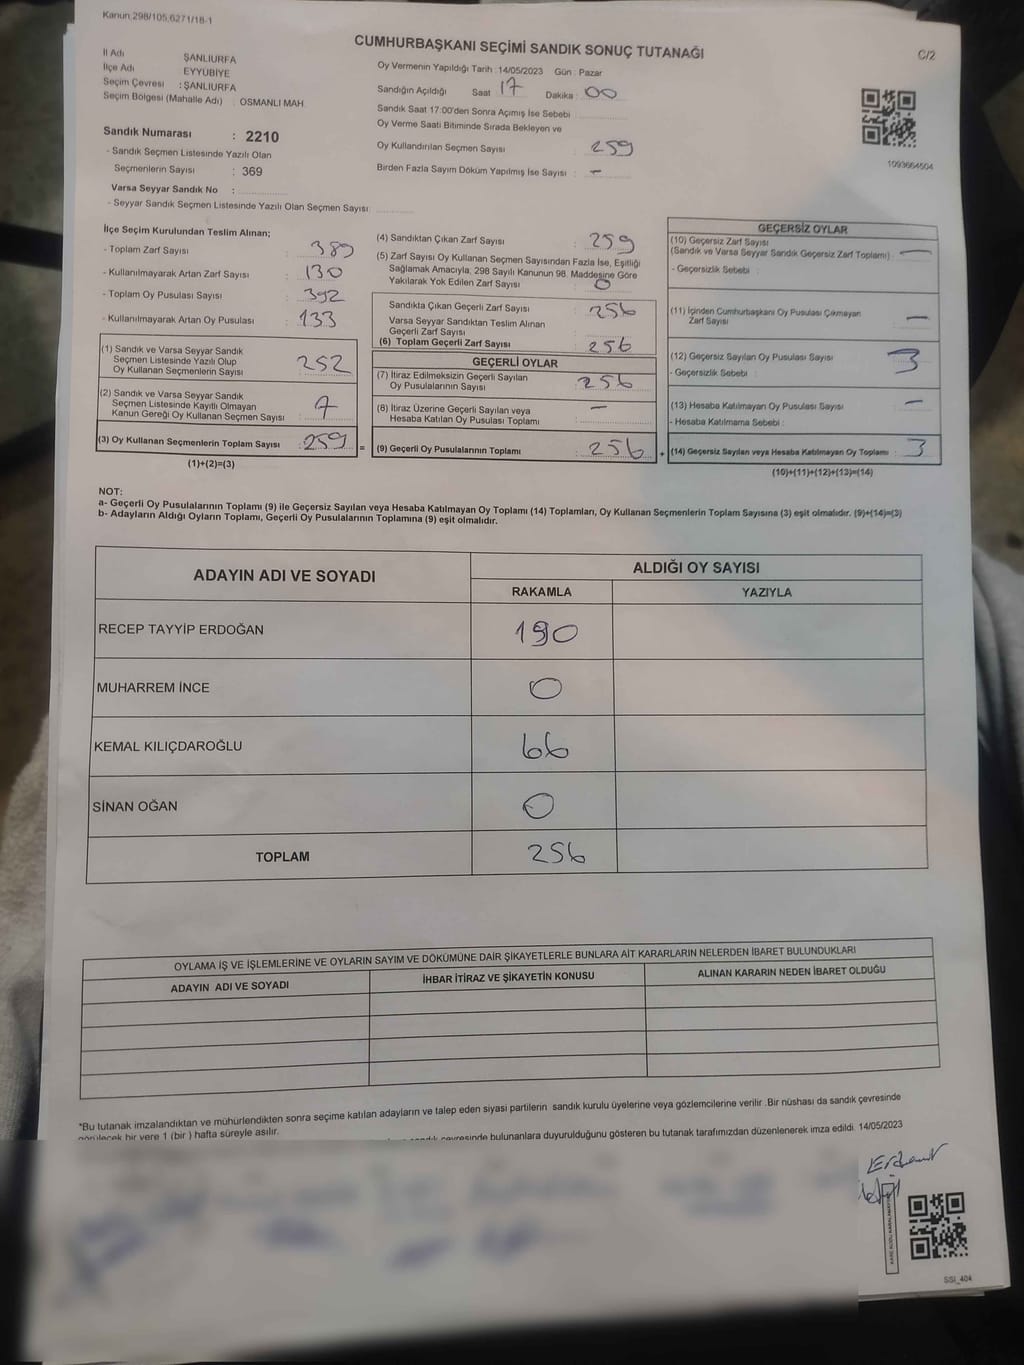 Kanun,298/105,6271/18-1
CUMHURBAŞKANI SEÇİMİ SANDIK SONUÇ TUTANAĞI
C/2
İl Adı ŞANLIURFA
İlçe Adı EYYÜBİYE
Seçim Çevresi : ŞANLIURFA
Seçim Bölgesi (Mahalle Adı) : OSMANLI MAH.
Sandık Numarası : 2210
- Sandık Seçmen Listesinde Yazılı Olan
Seçmenlerin Sayısı : 369
Varsa Seyyar Sandık No :
- Seyyar Sandık Seçmen Listesinde Yazılı Olan Seçmen Sayısı:
Oy Vermenin Yapıldığı Tarih :14/05/2023 Gün : Pazar
Sandığın Açıldığı Saat 17 Dakika : 00
Sandık Saat 17:00'den Sonra Açımış İse Sebebi
Oy Verme Saati Bitiminde Sırada Bekleyen ve
Oy Kullandırılan Seçmen Sayısı : 259
Birden Fazla Sayım Döküm Yapılmış İse Sayısı : -
1093664504
İlçe Seçim Kurulundan Teslim Alınan;
- Toplam Zarf Sayısı : 389
- Kullanılmayarak Artan Zarf Sayısı : 130
- Toplam Oy Pusulası Sayısı : 392
- Kullanılmayarak Artan Oy Pusulası : 133
(1) Sandık ve Varsa Seyyar Sandık
Seçmen Listesinde Yazılı Olup
Oy Kullanan Seçmenlerin Sayısı : 252
(2) Sandık ve Varsa Seyyar Sandık
Seçmen Listesinde Kayıtlı Olmayan
Kanun Gereği Oy Kullanan Seçmen Sayısı : 7
(3) Oy Kullanan Seçmenlerin Toplam Sayısı : 259 =
(1)+(2)=(3)
(4) Sandıktan Çıkan Zarf Sayısı : 259
(5) Zarf Sayısı Oy Kullanan Seçmen Sayısından Fazla İse, Eşitliği
Sağlamak Amacıyla, 298 Sayılı Kanunun 98. Maddesine Göre
Yakılarak Yok Edilen Zarf Sayısı : 0
Sandıkta Çıkan Geçerli Zarf Sayısı : 256
Varsa Seyyar Sandıktan Teslim Alınan
Geçerli Zarf Sayısı :
(6) Toplam Geçerli Zarf Sayısı : 256
GEÇERLİ OYLAR
(7) İtiraz Edilmeksizin Geçerli Sayılan
Oy Pusulalarının Sayısı : 256
(8) İtiraz Üzerine Geçerli Sayılan veya
Hesaba Katılan Oy Pusulası Toplamı : -
(9) Geçerli Oy Pusulalarının Toplamı : 256 +
GEÇERSİZ OYLAR
(10) Geçersiz Zarf Sayısı
(Sandık ve Varsa Seyyar Sandık Geçersiz Zarf Toplamı) : -
- Geçersizlik Sebebi :
(11) İçinden Cumhurbaşkanı Oy Pusulası Çıkmayan
Zarf Sayısı : -
(12) Geçersiz Sayılan Oy Pusulası Sayısı : 3
- Geçersizlik Sebebi :
(13) Hesaba Katılmayan Oy Pusulası Sayısı : -
- Hesaba Katılmama Sebebi :
(14) Geçersiz Sayılan veya Hesaba Katılmayan Oy Toplamı : 3
(10)+(11)+(12)+(13)=(14)
NOT:
a- Geçerli Oy Pusulalarının Toplamı (9) ile Geçersiz Sayılan veya Hesaba Katılmayan Oy Toplamı (14) Toplamları, Oy Kullanan Seçmenlerin Toplam Sayısına (3) eşit olmalıdır. (9)+(14)=(3)
b- Adayların Aldığı Oyların Toplamı, Geçerli Oy Pusulalarının Toplamına (9) eşit olmalıdır.
ADAYIN ADI VE SOYADI ALDIĞI OY SAYISI
RAKAMLA YAZIYLA
RECEP TAYYİP ERDOĞAN 190
MUHARREM İNCE 0
KEMAL KILIÇDAROĞLU 66
SİNAN OĞAN 0
TOPLAM 256
OYLAMA İŞ VE İŞLEMLERİNE VE OYLARIN SAYIM VE DÖKÜMÜNE DAİR ŞİKAYETLERLE BUNLARA AİT KARARLARIN NELERDEN İBARET BULUNDUKLARI
ADAYIN ADI VE SOYADI İHBAR İTİRAZ VE ŞİKAYETİN KONUSU ALINAN KARARIN NEDEN İBARET OLDUĞU
*Bu tutanak imzalandıktan ve mühürlendikten sonra seçime katılan adayların ve talep eden siyasi partilerin sandık kurulu üyelerine veya gözlemcilerine verilir .Bir nüshası da sandık çevresinde
görülecek bir yere 1 (bir ) hafta süreyle asılır.
çevresinde bulunanlara duyurulduğunu gösteren bu tutanak tarafımızdan düzenlenerek imza edildi. 14/05/2023
SSI_404